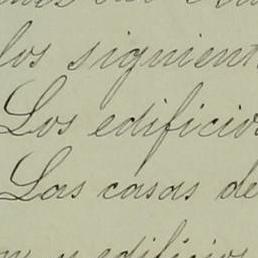 los siguient
Los edificios
Las casas de
y edificios